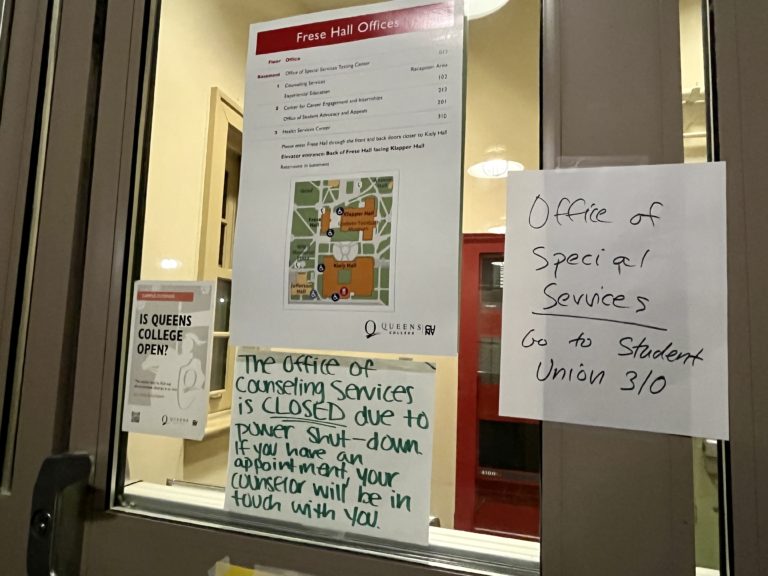 Frese Hall Offices
Floor Office
Basement Office of Special Services Testing Center
1 Counseling Services Reception Area
Experiential Education 102
2 Center for Career Engagement and Internships 213
Office of Student Advocacy and Appeals 201
3 Health Services Center 310
Please enter Frese Hall through the front and back doors closer to Kiely Hall
Elevator entrance: Back of Frese Hall facing Klapper Hall
Restrooms in basement
Klapper Hall
Kiely Hall
Jefferson
Hall
QUEENS
COLLEGE
CU
NY
IS QUEENS
COLLEGE
OPEN?
QUEENS
The Office of
Counseling Services
is CLOSED due to
power shut-down.
If you have an
appointment, your
counselor will be in
touch with you.
Office of
Special
Services
Go to Student
Union 310